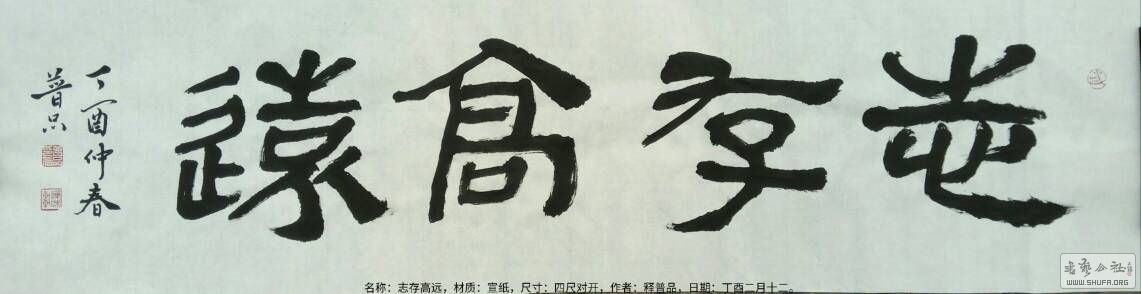 志存高遠
丁酉仲春
普品
名称：志存高远，材质：宣纸，尺寸：四尺对开，作者：释普品，日期：丁酉二月十二。
书艺公社
WWW.SHUFA.ORG